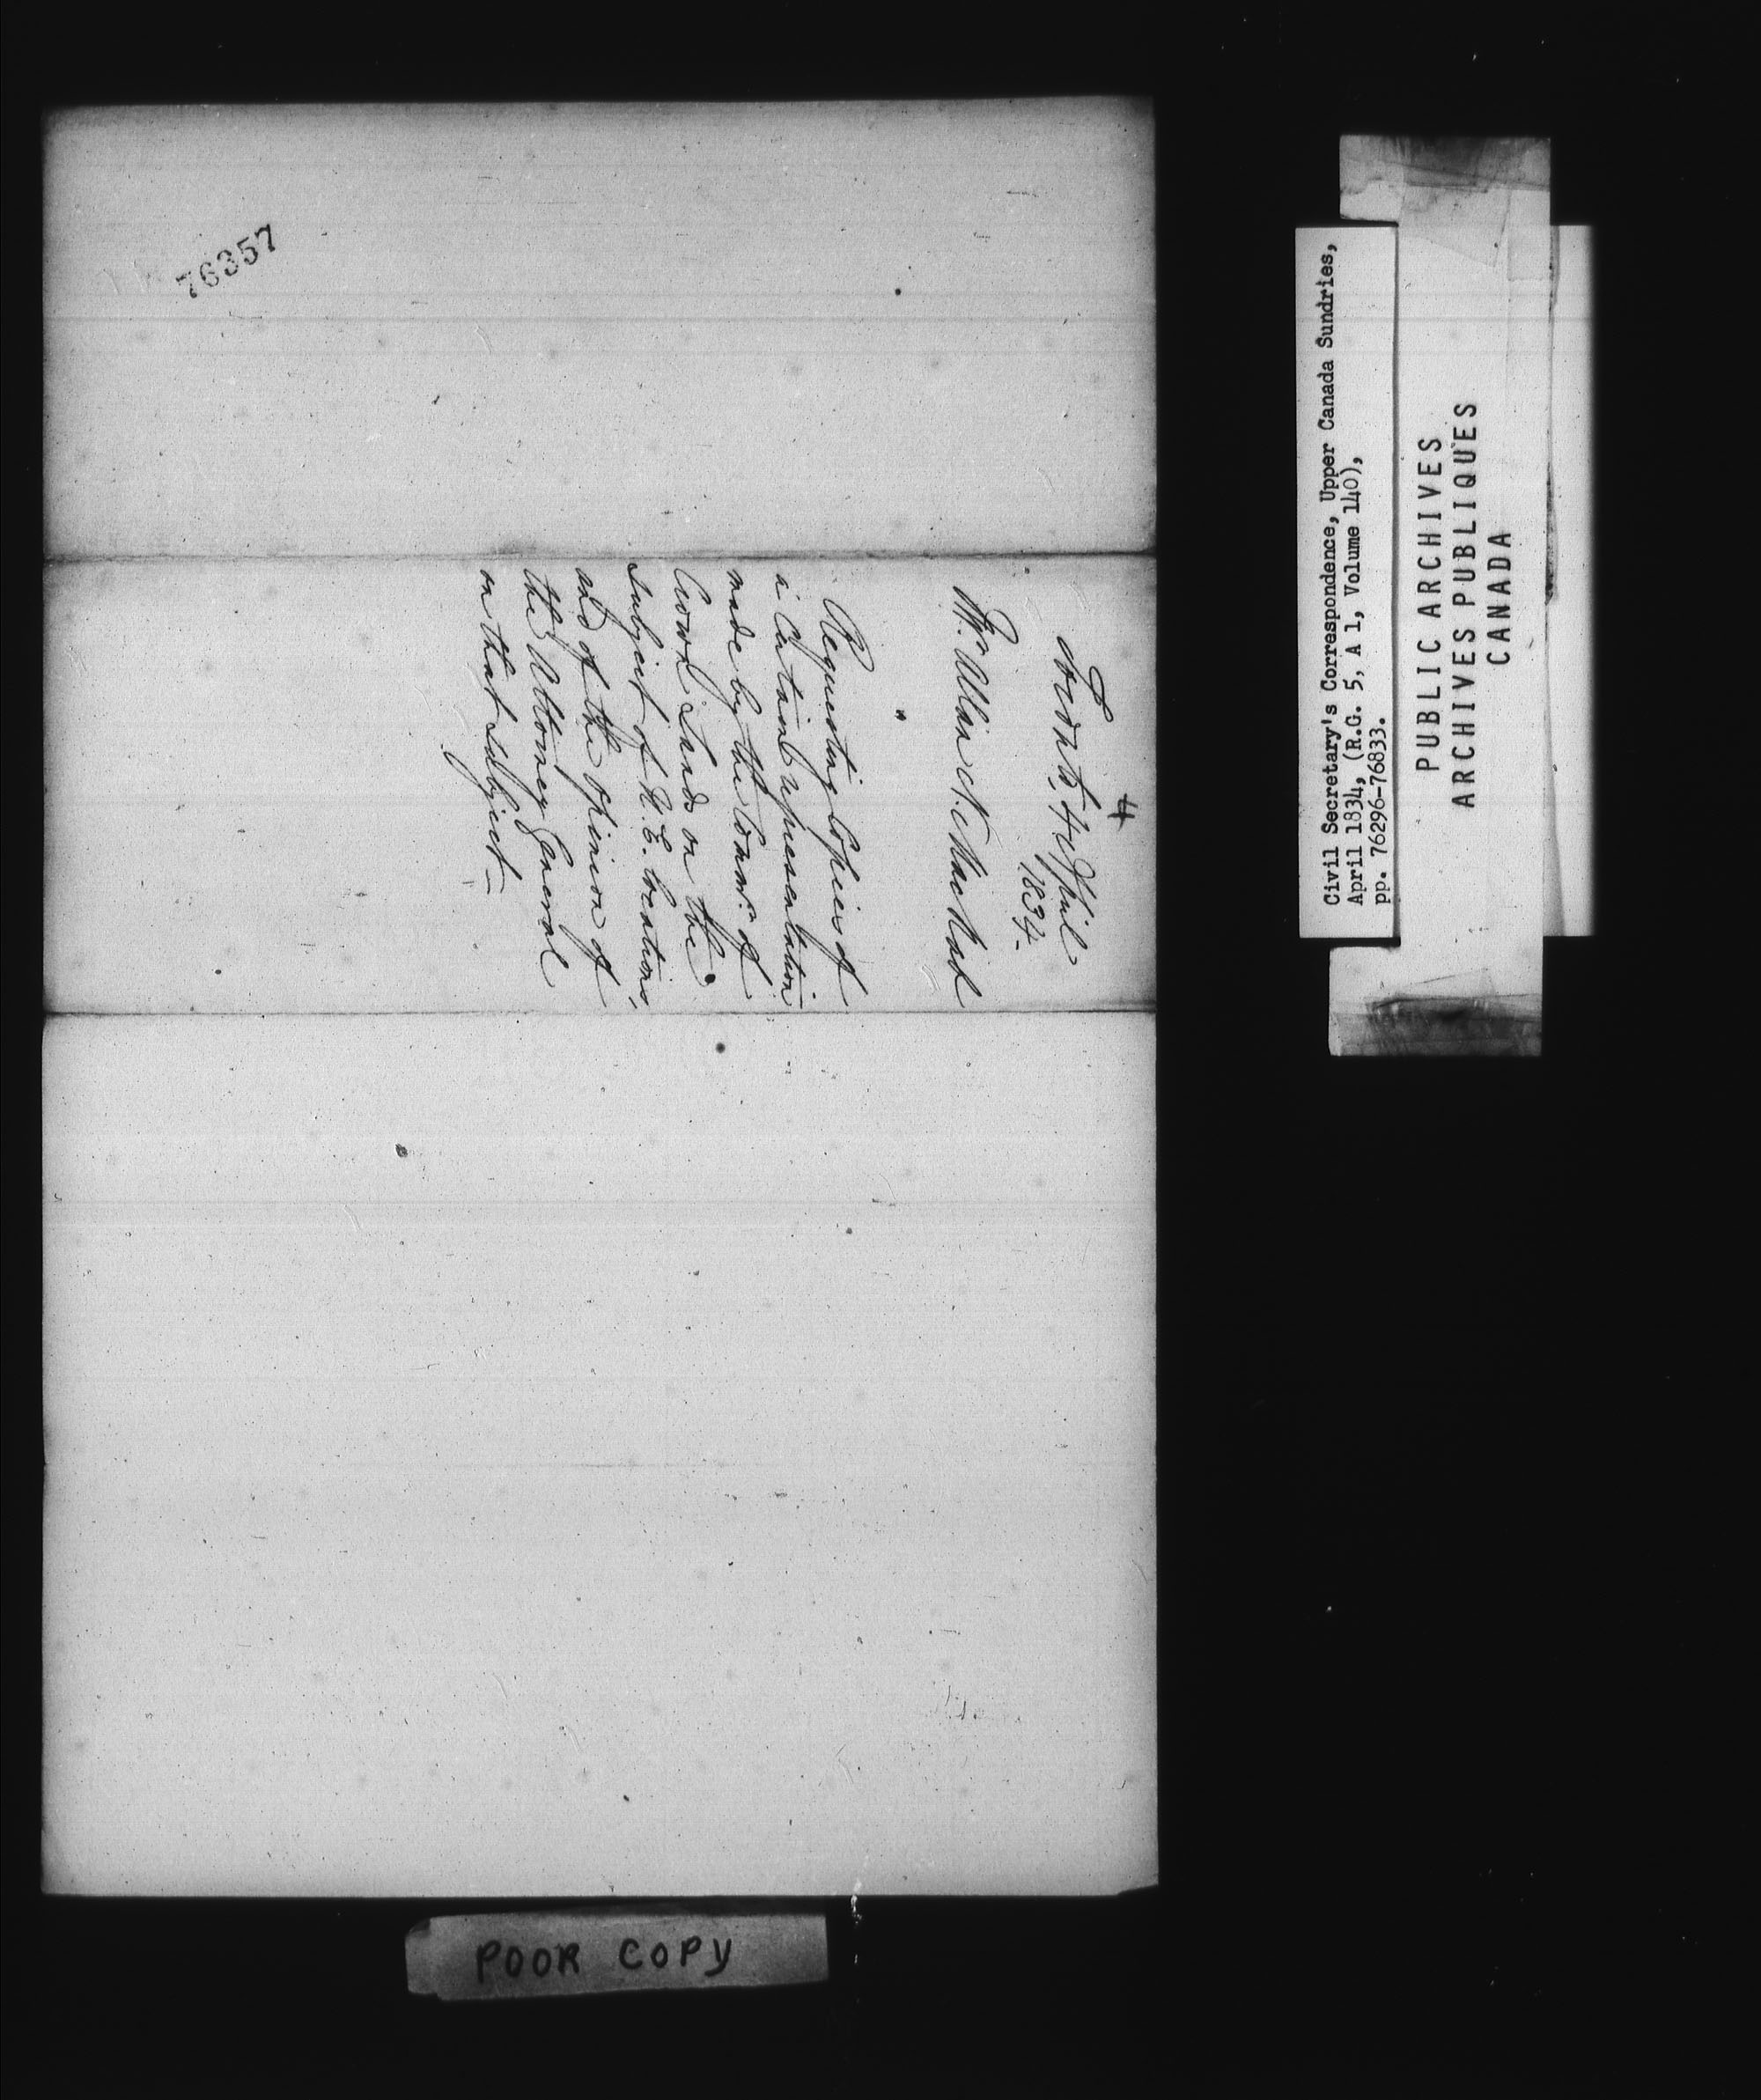 76357
4
Toronto, 4 April
1834.
Mr. Allan N. MacNab
Requesting Copies of
a certain representation
made by the Commr. of
Crown Lands on the
Subject of U.E. locations,
and of the opinion of
the Attorney General
on that subject—
Civil Secretary's Correspondence, Upper Canada Sundries,
April 1834, (R.G. 5, A 1, Volume 140),
pp. 76296-76833.
PUBLIC ARCHIVES
ARCHIVES PUBLIQUES
CANADA
POOR COPY